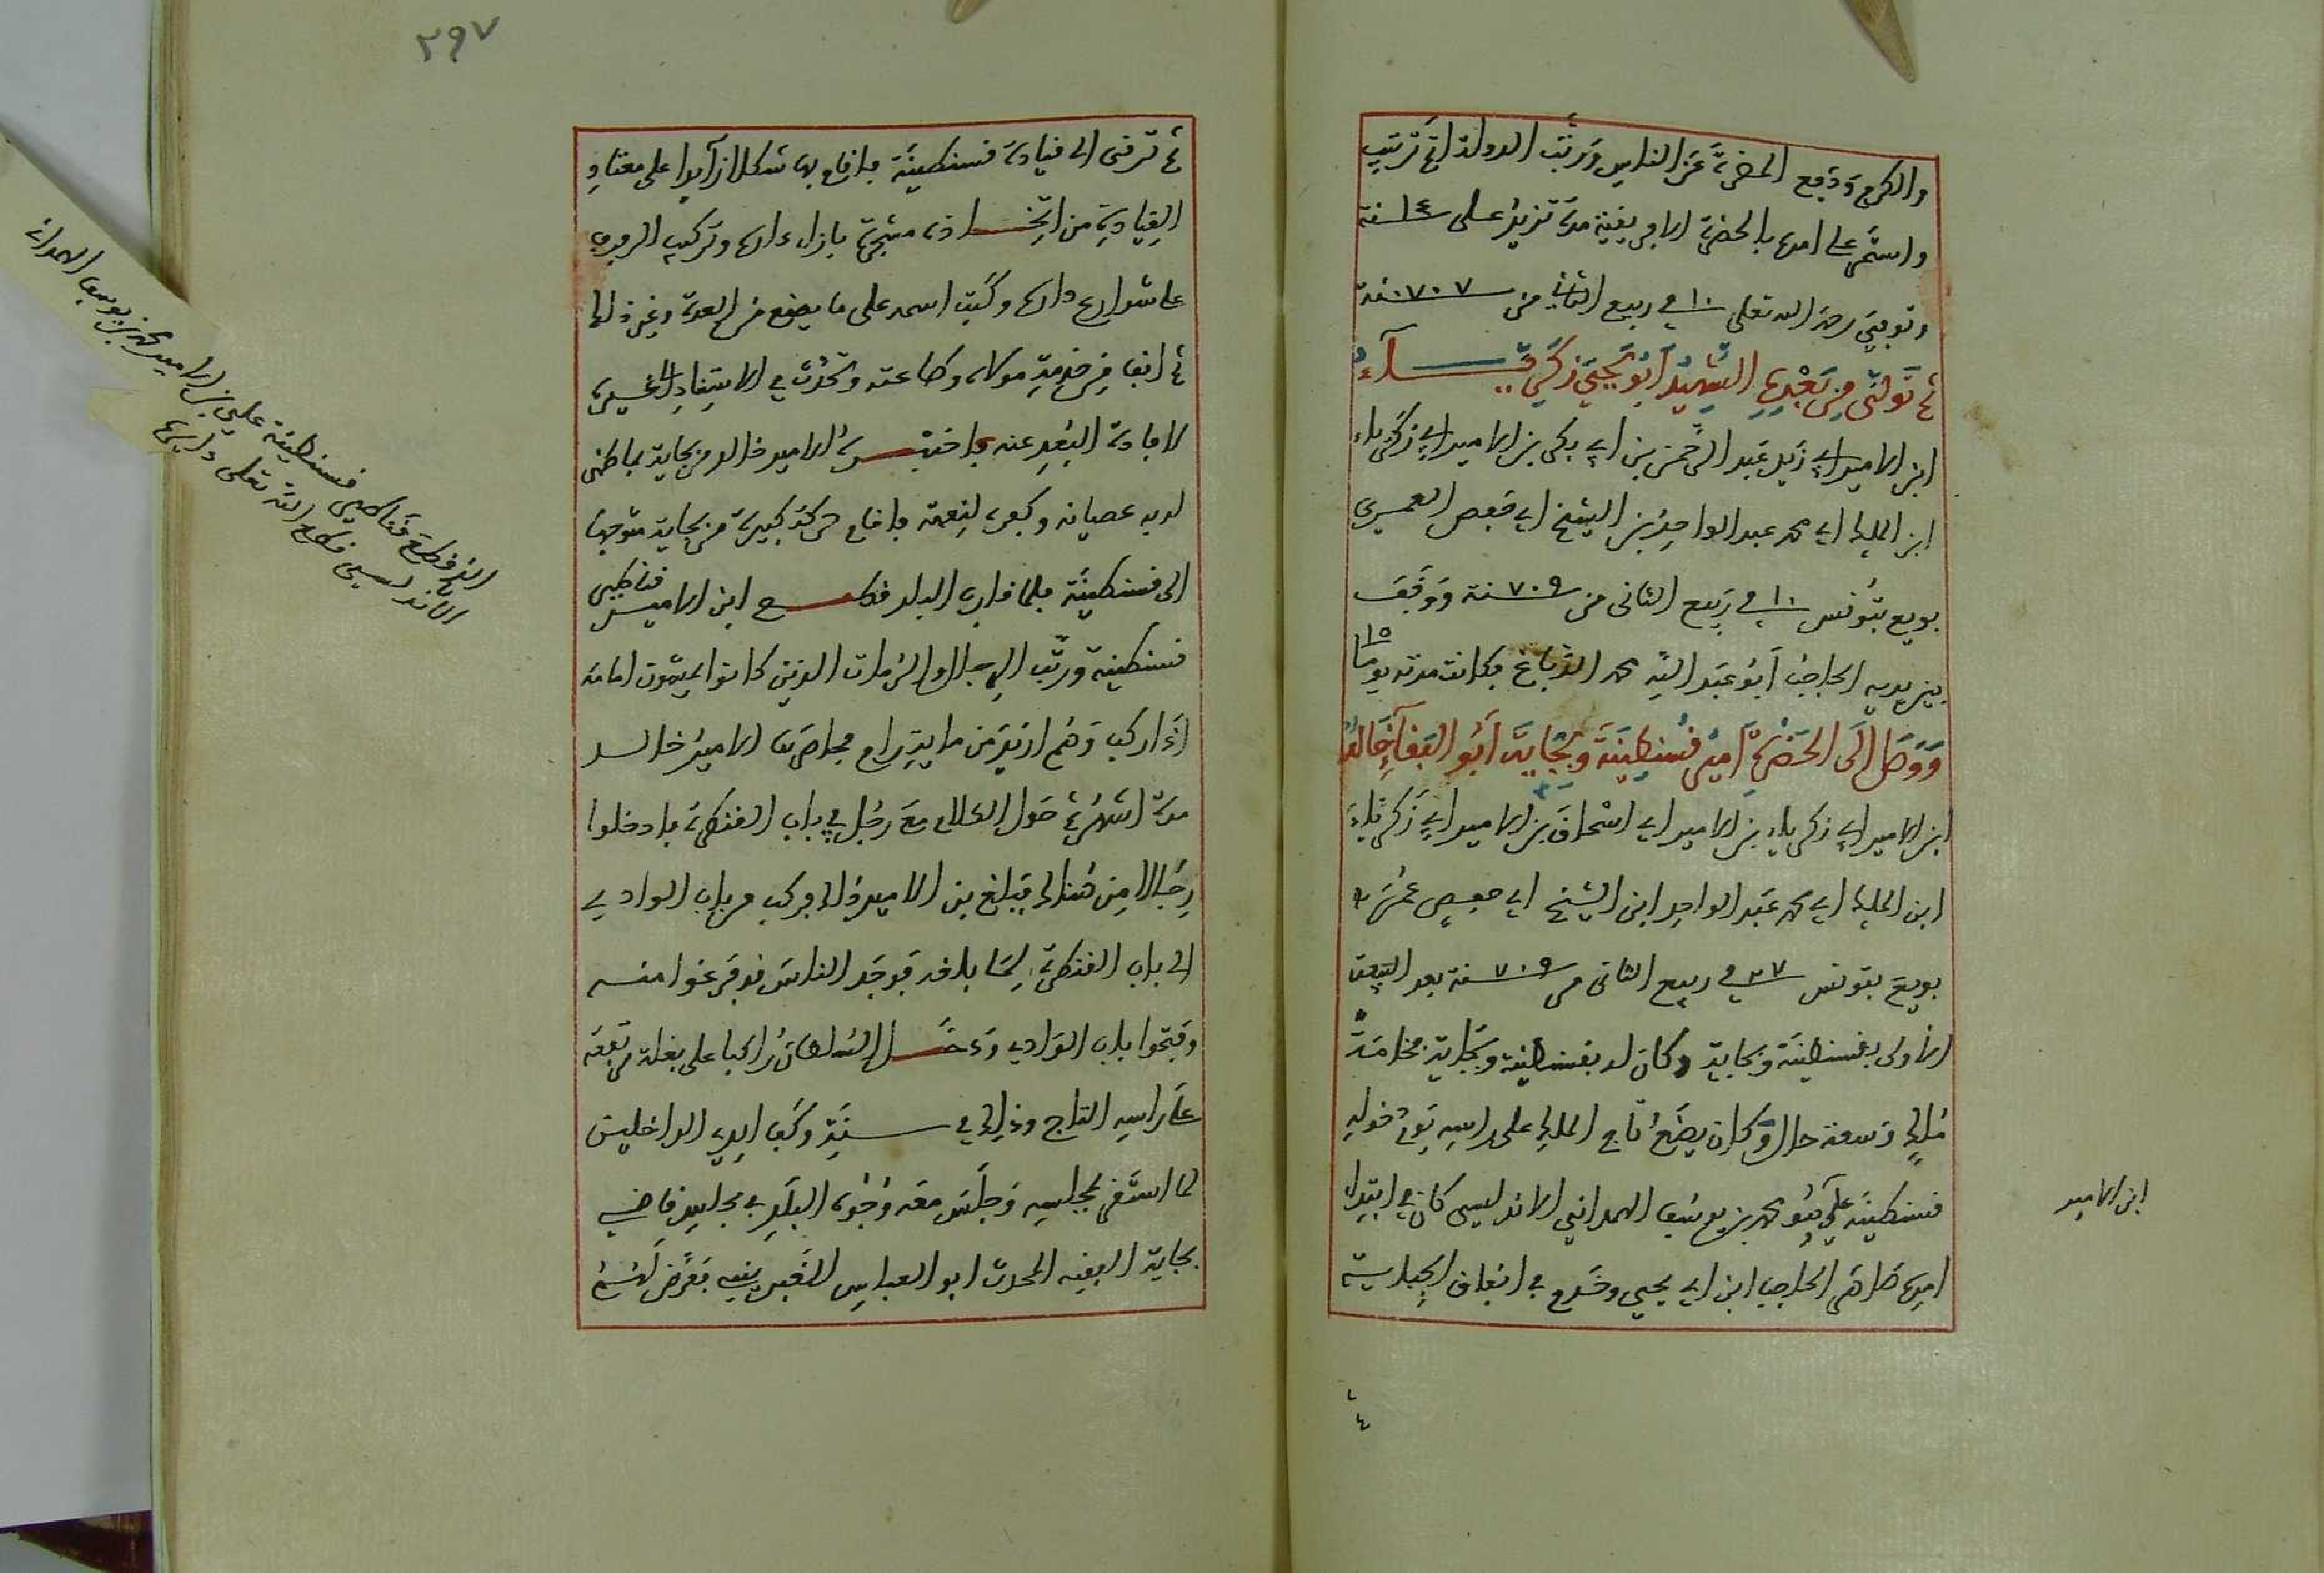 والكرم ودفع المضرة عن الناس ورتب الدولة اتم ترتيب
واستمر على امره بالحضرة الافريقية مدة تزيد على ١٤ سنة
وتوفي رحمه الله تعلى ١٠ في ربيع الثاني من ٧٠٧ سنة
ثم تولى من بعده الشهيد ابو يحيى زكرياء
ابن الامير ابي زيد عبد الرحمن بن ابي بكر بن الامير ابي زكرياء
ابن الملك ابي محمد عبد الواحد بن الشيخ ابي حفص العمري
بويع بتونس ١٠ في ربيع الثاني من ٧٠٩ سنة ووقف
بين يديه الحاجب ابو عبد الله محمد الدباغ فكانت مدته يوما ١٥
ووصل الى الحضرة امير قسنطينة وبجاية ابو البقآ خالد
ابن الامير ابي زكرياء بن الامير ابي اسحاق بن الامير ابي زكرياء
ابن الملك ابي محمد عبد الواحد ابن الشيخ ابي حفص عمر
بويع بتونس ٢٧ في ربيع الثاني من ٧٠٩ سنة بعد البيعة
الاولى بقسنطينة وبجاية وكان له بقسنطينة وبجاية فخامة
ملك وسعة حال وكان يضع تاج الملك على راسه يوم دخوله
قسنطينة علي بن محمد بن يوسف الهمداني الاندلسي كان في ابتداء
امره ظاهر الحاجب ابن ابي يحيى وخدم في اشغاف الجباسية
ابن الامير
٣٩٧
ثم ترقى الى قيادة قسنطينة فاقام بها شكلا زايدا على معتاد
القيادة من اتخاذ مشجرة بازاء داره وتركيب الدروب
على شوارع داره وكتب اسمه على ما يصنع من العدة وغير ذلك
ثم انف من خدمة مولاه وطاعته وتحدث في الاستبداد لغيره
لافادة البعد عنه فاختبره الامير خالد من بجاية بما ظهر
لديه عصيانه وكفره لنعمه فاقام حركة كبيرة من بجاية متوجها
الى قسنطينة فلما قارب البلد قطع ابن الامير قناطير
قسنطينة ورتب الرجال والرماة الذين كانوا يمشون امامه
اذا ركب وهم ازيد من ماية رام فحاصرها الامير خالد
مدة اشهر ثم حول الكلام مع رجل في باب القنطرة فادخلوا
رجالا من هنالك فبلغ بن الامير ذلك فركب من باب الوادي
الى باب القنطرة لما بلغه فوجد الناس قد فرغوا منه
وفتحوا باب الوادي ودخل السلطان راكبا على بغلة مرتفعة
على راسه التاج وذلك في سنة وكف ايدي الداخلين
لما استقر بمجلسه وجلس معه وجوه البلد في مجلس قاضي
بجاية الفقيه المحدث ابو العباس الغبريني فعرض لهم
الذي قطع قناطير قسنطينة علي بن الامير محمد بن يوسف الهمداني
الاندلسي قطع الله تعلى دابره